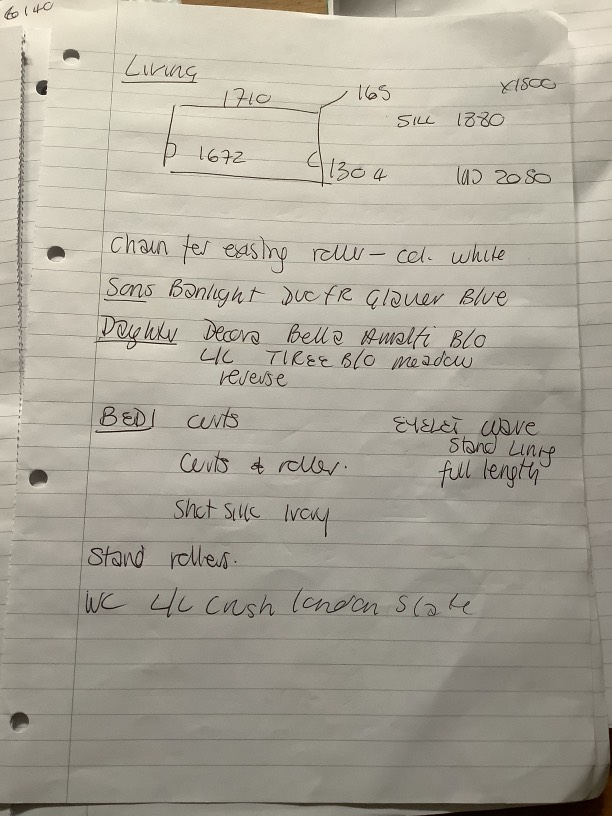 60140
Living
1710 165 x1800
Sill 1880
1672 1304 2080
Chain for exasing roller - col. white
Sons Banlight Duc FR Glauer Blue
Daughter Decora Bella Amalfi B/O
L/L TIREE B/O meadow
reverse
BED1 curts EYELET wave
Stand Lining
Curts & roller. full length
Shot silk Ivory
Stand rollers.
WC L/L Crush London Slate